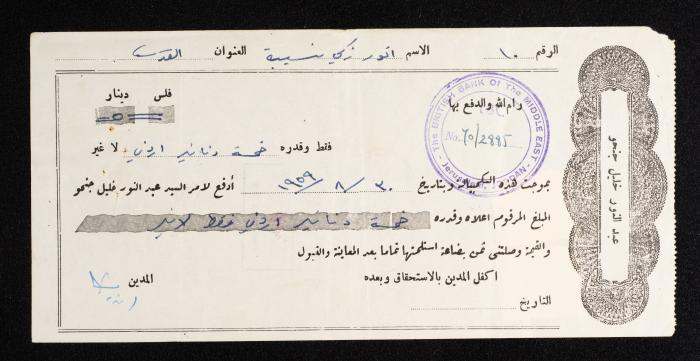 الرقم ١٠ الاسم انور زكي نسيبة العنوان القدس
فلس دينار
=٥=
رام الله والدفع بها
The BRITISH BANK OF The MIDDLE EAST
No. 70/2885
Jerusalem JORDAN
فقط وقدره خمسة دنانير اردني لا غير
بموجب هذه الكمبيالة وبتاريخ ٣٠/٨/١٩٥٩ أدفع لامر السيد عبد النور خليل جنحو
المبلغ المرقوم اعلاه وقدره خمسة دنانير اردني فقط لاغير
والقيمة وصلتني ثمن بضاعة استلمتها تماما بعد المعاينة والقبول
اكفل المدين بالاستحقاق وبعده المدين
التاريخ
عبد النور خليل جنحو